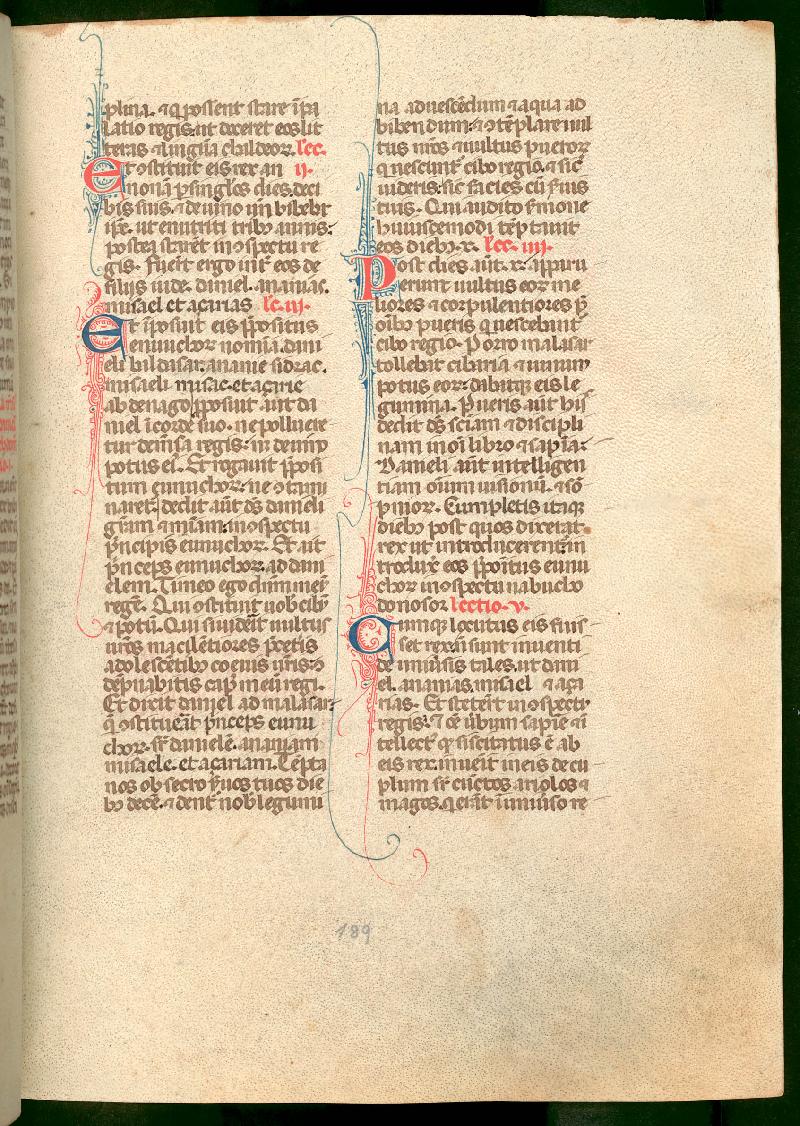 plina. ⁊ q̄ possent stare ī pa
latio regis: ut doceret eos lit
teras ⁊ linguā chaldeoꝝ. lec.
Et ɔstituit eis rex an ii.
nonā ꝑ singlos dies. de ci
bis suis. ⁊ de uino uñ bibebt
ipe. ut enutriti tribꝫ annis:
postea starēt in ɔspectu re
gis. Fuert̄ ergo int̄ eos de
filijs iude. daniel. ananias.
misael et açarias lc. iij.
Et īposuit eis p̄positus
eunuchoꝝ nomīa. dani
eli baldasar. ananie sidrac.
misaeli misac. et açarie
abdenago. p̄posuit aūt da
niel ī corde suo. ne pollueret
tur de m̄sa regis: ⁊ de uino
potus ei᾽. Et rogauit p̄posi
tum eunuchoꝝ. ne ɔtami
naret᾽. dedit aūt dš danieli
grām ⁊ miām: in ɔspectu
p̄ncipis eunuchoꝝ. Et ait
p̄nceps eunuchoꝝ: ad dani
elem. Timeo ego dūm meū
regē. Qui ɔstituit uob cibū
⁊ potū. Qui si uiderit uultus
uros macilētiores p̄ cetis
adolescētibꝫ coeuis uris: ɔ
dēpnabitis cap᾽ meū regi.
Et dixit daniel ad malasar:
q̄ ɔstituerat p̄nceps eunu
choꝝ. sr̄ danielē. ananiam
misaelē. et açariam. Tēpta
nos obsecro ẜuos tuos die
bꝫ decē. ⁊ dent᾽ nob legumi
na ad uescēdum ⁊ aqua ad
bibendum: ⁊ ɔtēplare uul
tus nros ⁊ uultus pueroꝝ
q̄ uescunt᾽ cibo regio. ⁊ sic᾽
uideris: sic facies cū ẜuis
tuis. Qui audito ẜmone
huiuscemodi tēptauit
eos diebꝫ. x. lec. iiij.
Post dies aūt. x. apparu
erunt uultus eoꝝ me
liores ⁊ corpulentiores p̄
oībꝫ pueris q̄ uescebant᾽
cibo regio. Porro malasar
tollebat cibaria ⁊ uinum
potus eoꝝ. dabatqꝫ eis le
gumina. Pueris aūt his
dedit dš sciam ⁊ discipli
nam in oī libro ⁊ sapīa.
Danieli aūt intelligen
tiam oīum uisionū. ⁊ sō
pnioꝝ. Cumpletis itaqꝫ
diebꝫ post quos dixerat
rex ut introducerent᾽: in
troduxit eos p̄positus eunu
choꝝ in ɔspectu nabucho
donosor. lectio. v.
Cumqꝫ locutus eis fuis
set rex. nō sunt inuenti
de uniuersis tales. ut dani
el. ananias. misael ⁊ aça
rias. Et steterūt in ɔspectu
regis. ⁊ oē ūbum sapiē ⁊ ī
tellect᾽ qd᾽ sciscitatus ē ab
eis rex. inuenit in eis decu
plum sr̄ cunctos ariolos ⁊
magos. q̄ erāt ī uniuso re
189